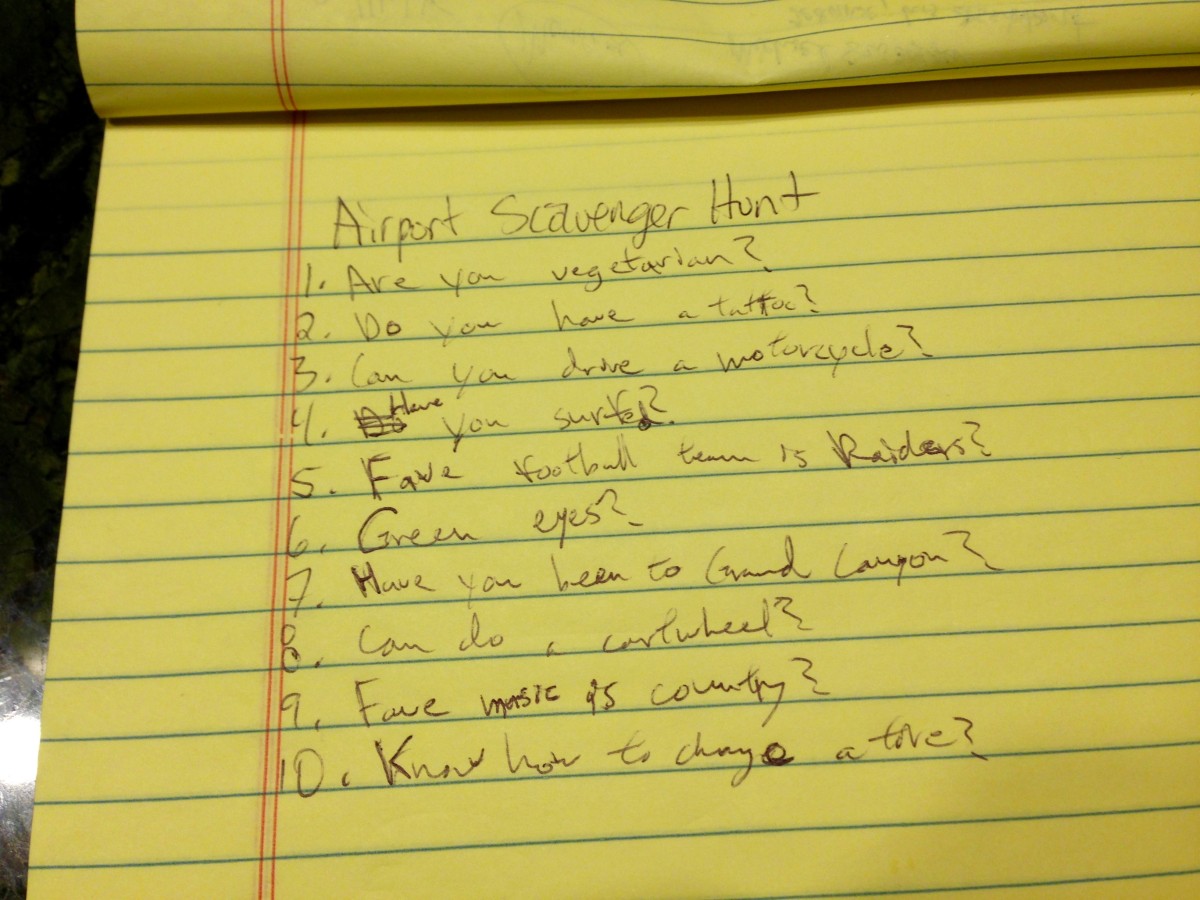 Airport Scavenger Hunt
1. Are you vegetarian?
2. Do you have a tattoo?
3. Can you drive a motorcycle?
4. Have you surfed?
5. Fave football team is Raiders?
6. Green eyes?
7. Have you been to Grand Canyon?
8. Can do a cartwheel?
9. Fave music is country?
10. Know how to change a tire?